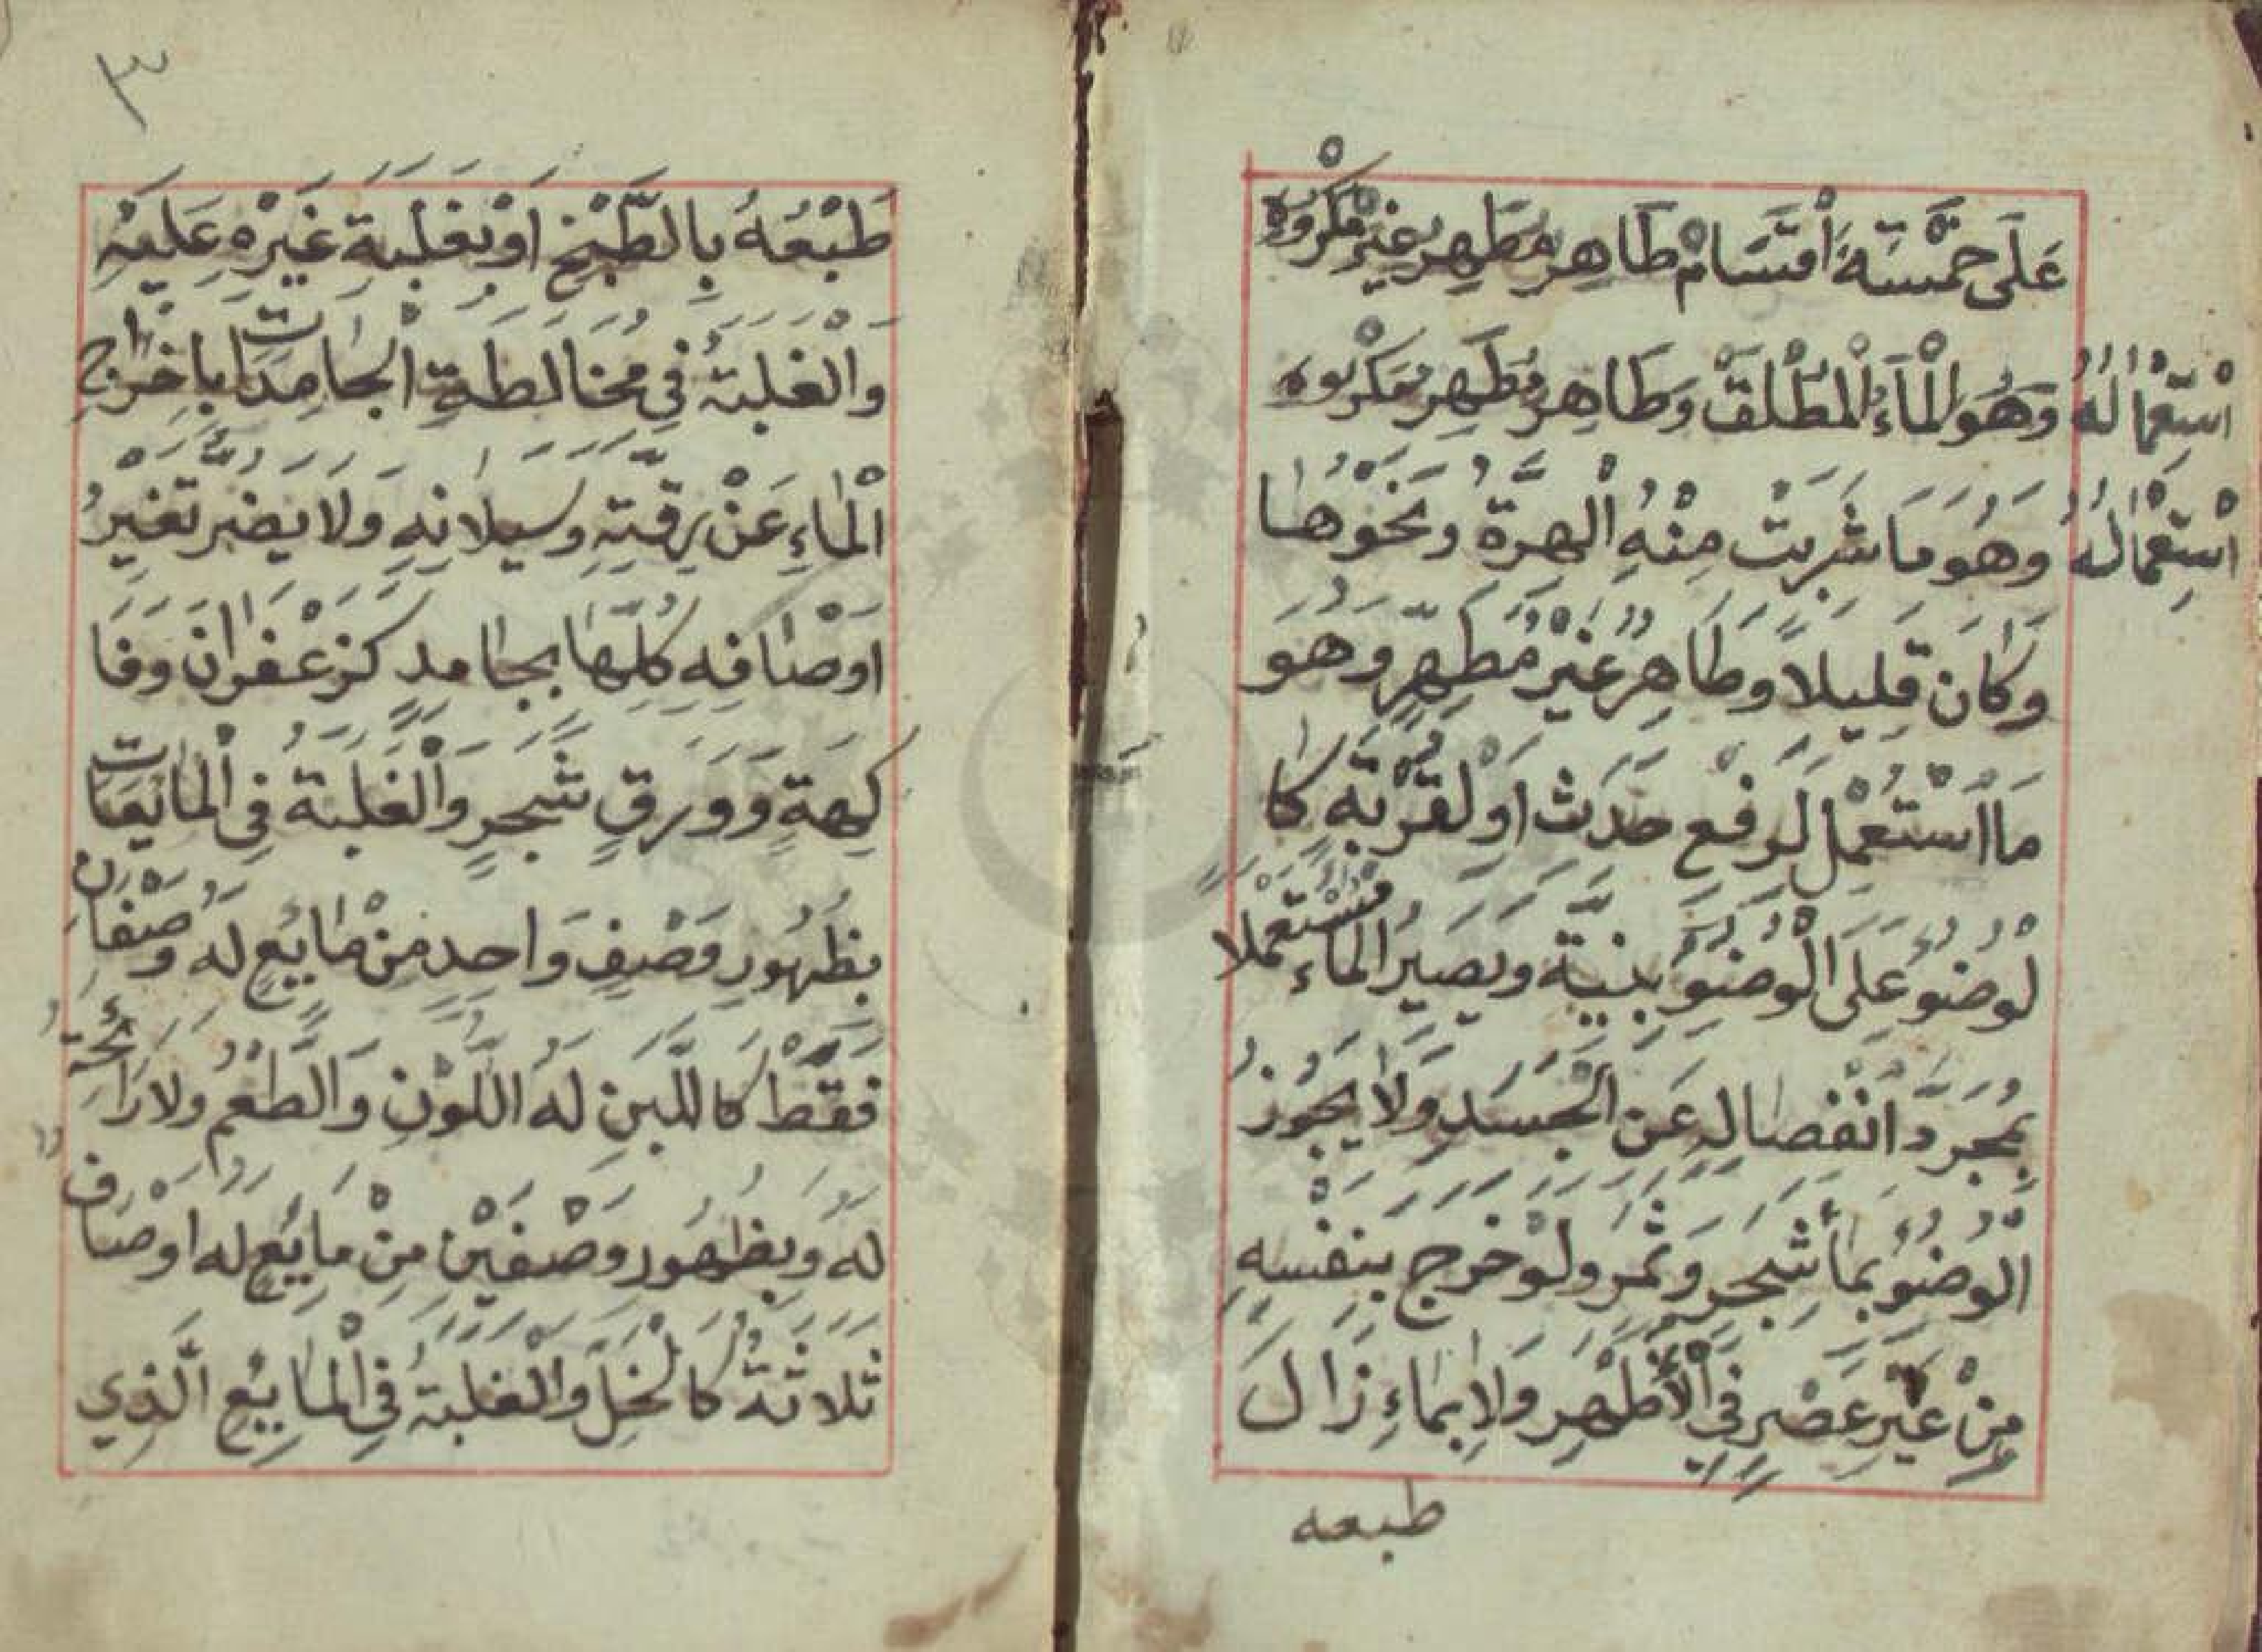 عَلَى خَمْسَةِ أَقْسَامْ طَاهِر مُطَهِر غَيْرَ مَكْرُوْه
اسْتِعْمٰالُهُ وَهُوَ الْمَآءُ الْمُطْلَقْ وَطَاهِر مُطَهِر مَكْرُوْه
اسْتِعْمٰالُهُ وَهُوَ مَا شَرِبَتْ مِنْهُ الْهِرَّةُ وَنَحْوُهٰا
وَكَانَ قَلِيلاً وَطَاهِرٌ غَيْرُ مُطَهِّرٍ وَهُوَ
مَا اسْتُعْمِلَ لِرَفْعِ حَدَثٍ اَوْ لِقُرْبَةٍ كَا
لْوُضُوُءِ عَلَى الْوُضُوُءِ بِنِيَّةِ وَيَصِيَرُ الْمَاءُ مُسْتَعْمَلاً
بِمُجَرَّدِ انْفِصٰالِهِ عَنِ الْجَسَدِ وَلاٰ يَجُوزُ
الْوُضُوُءُ بِمَاءِ شَجَرٍ وَثَمَرٍ وَلَوْ خَرَجَ بِنَفْسِهِ
مِنْ غَيْرِ عَصْرٍ فِي الْأَظْهَرِ وَلاٰ بِمٰاءٍ زَالَ
طبعه
٣
طَبْعُهُ بِالطَّبْخِ اَوْ بِغَلْبَةِ غَيْرِهِ عَلَيْهِ
وَالْغَلَبَةُ فِي مُخَالَطَةِ الْجٰامِدَاتِ بِاِخْرٰاجِ
الْمٰاءِ عَنْ رِقَّتِهِ وَسَيَلاٰنِهِ وَلاَ يَضُرُّ تَغَيُّرُ
اَوْصٰافِهِ كُلِّهٰا بِجٰامِدٍ كَزَعْفَرانَ وَفَا
كِهَةٍ وَوَرَقِ شَجَرٍ وَالْغَلَبَةُ فِي الْمٰايِعَاتِ
بِظُهُورِ وَصْفٍ وَاحِدٍ مِنْ مٰايُعٍ لَهُ وَصْفَانِ
فَقَطْ كَاللَّبَنِ لَهُ اللَّوْنِ وَالطَّعْمُ وَلاَ رَائِحَةَ
لَهُ وَبِظُهُورِ وَصْفَيْنِ مِنْ مٰايِعٍ لَهُ اَوْصَافٌ
ثَلاَثَةُ كَالْخَلِّ وَالْغَلَبَةُ فِي الْمٰايِعِ الَّذِي